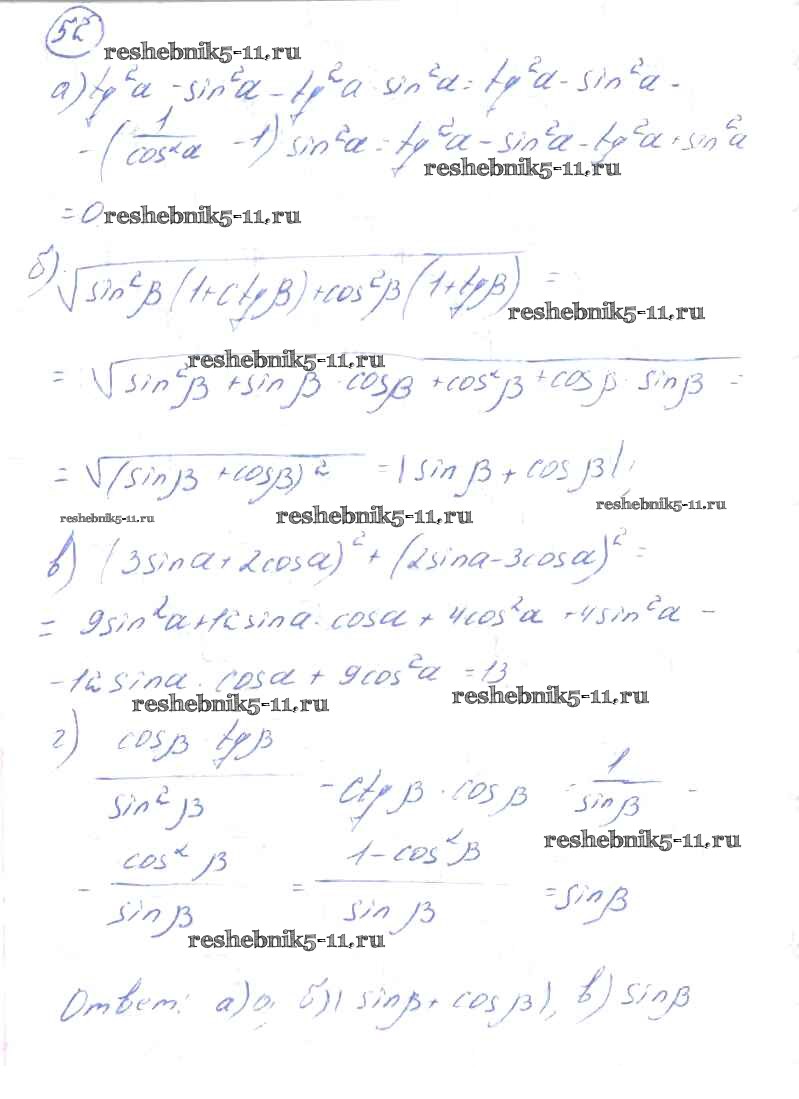 52
reshebnik5-11.ru
а) tg²α - sin²α - tg²α · sin²α = tg²α - sin²α -
- (1/cos²α - 1) sin²α = tg²α - sin²α - tg²α + sin²α
reshebnik5-11.ru
= 0 reshebnik5-11.ru
б) √(sin²β (1+ctgβ) + cos²β (1+tgβ)) =
reshebnik5-11.ru
reshebnik5-11.ru
= √(sin²β + sinβ · cosβ + cos²β + cosβ · sinβ) =
= √((sinβ + cosβ)²) = |sinβ + cosβ|;
reshebnik5-11.ru reshebnik5-11.ru reshebnik5-11.ru
в) (3sinα + 2cosα)² + (2sinα - 3cosα)² =
= 9sin²α + 12sinα · cosα + 4cos²α + 4sin²α -
- 12sinα · cosα + 9cos²α = 13
reshebnik5-11.ru reshebnik5-11.ru
г) (cosβ · tgβ)/(sin²β) - ctgβ · cosβ = 1/sinβ -
reshebnik5-11.ru
- cos²β/sinβ = (1 - cos²β)/sinβ = sinβ
reshebnik5-11.ru
Ответ: а) 0; б) |sinβ + cosβ|, в) sinβ